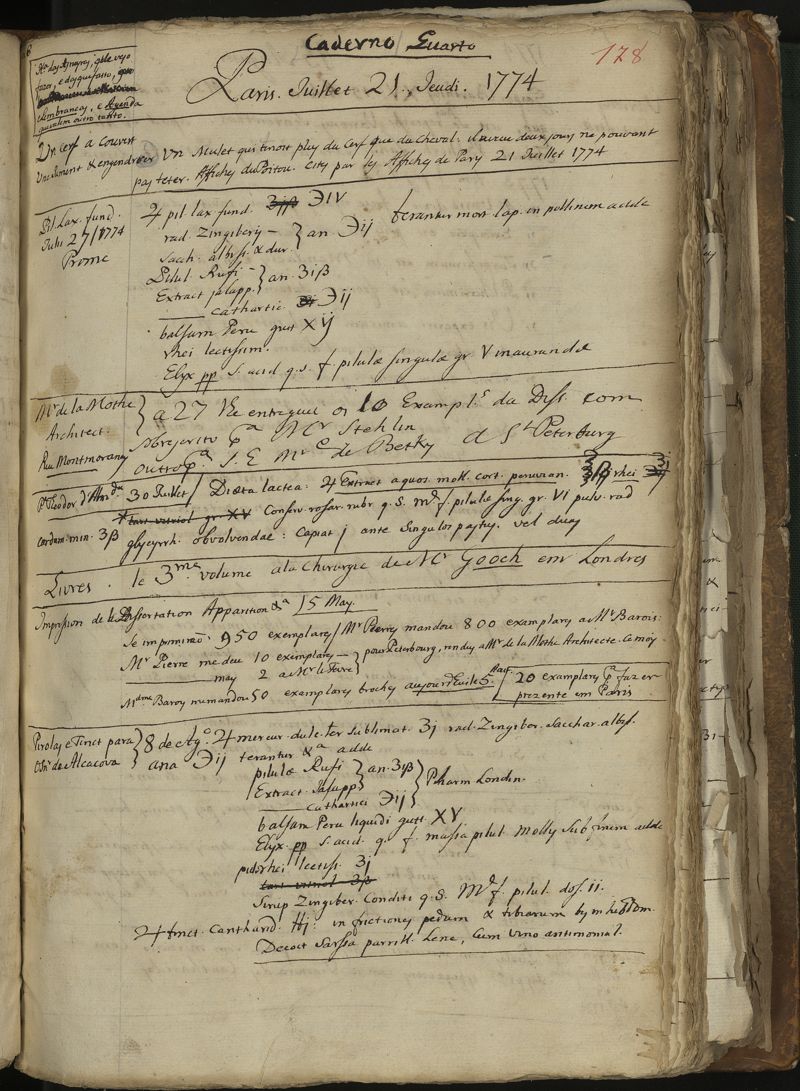 Caderno Quarto
128
Paris. Juillet 21. Jeudi. 1774
fazer, e
Lembrancas, e Agenda
Un cerf a couvert
une jument & engendré
Un Mulet qui tenoit plus du Cerf que du Cheval: il deux jours ne pouvant
pas teter. Affiches du Poitou. City par les Affiches de Paris 21 Juillet 1774
Pil. Lax. fund.
Julii 27/1774
Prome
♃ pil lax fund. ℈IV terantur mort. lap. in pollinem adde
rad. Zingiberis —
Sacch. albiss. & dur. } an. ℈ij
Pilul Rufi —
Extract jalapp. } an. ʒiβ
—— cathartic ℈ij
balsam Peru gutt XIj
rhei lectissim.
Elyx pp s. acid q.s. f. pilulæ singulæ gr V inaurandæ
Mr. de la Mothe
Architect.
Rue Montmorancy
} a 27 lhe entreguei os 10 Exempl.s da Diss. com
sobrejerito pa Mr Stehlin
outro pa S. E. Mr de Betky a St Peterburg
30 Juillet / Diæta lactea: ♃ Extract aquos. moll. cort. peruvian. ʒiβ rhei
tart vitriol gr. XV Conserv. rosar. rubr q. S. Md f. pilulæ sing. gr. VI pulv. rad
cardam. min. ʒβ glycyrrh. obvolvendae: Capiat j ante singulos pastus. vel duas
Livres. le 3me. volume a la Chirurgie de Mr Gooch em Londres
Impression de la Dissertation Apparition &a 15 May.
Se imprimirão: 950 exemplares / Mr Pierres mandou 800 exemplares a Mr Barois:
Mr Pierre me deu 10 exemplares —
mais 2 a Mr le Fevre } pour Peterbourg, rendus a Mr de la Mothe Architecte. Ce moy
Mdme Baroy me mandou 50 exemplares brochés aujourd'hui le 5 [20 exemplares pa fazer
prezente em Paris
Pirolas e Tinct para
de Alcacova
} 8 de Agto. ♃ mercur. dulc. ter sublimat. ʒj rad. Zingiber. Sacchar. albiss.
ana ℈ij terantur &a adde
pilulæ Rufi
Extract. Jalapp } an. ʒiβ
—— Cathartici ℈ij } Pharm Londin.
balsam Peru liquidi gutt. XV
Elyx. pp s. acid. q. f. massa pilul. mollis sub finem adde
rhei lectiss. ʒj
tart vitriol ʒβ
Sirup Zingiber. Conditi q. S. Md f. pilul. dos. ii.
♃ tinct. Cantharid. in frictiones pedum & tibiarum
Decoct Sarsa parrill. Lene, Cum vino antimonial.